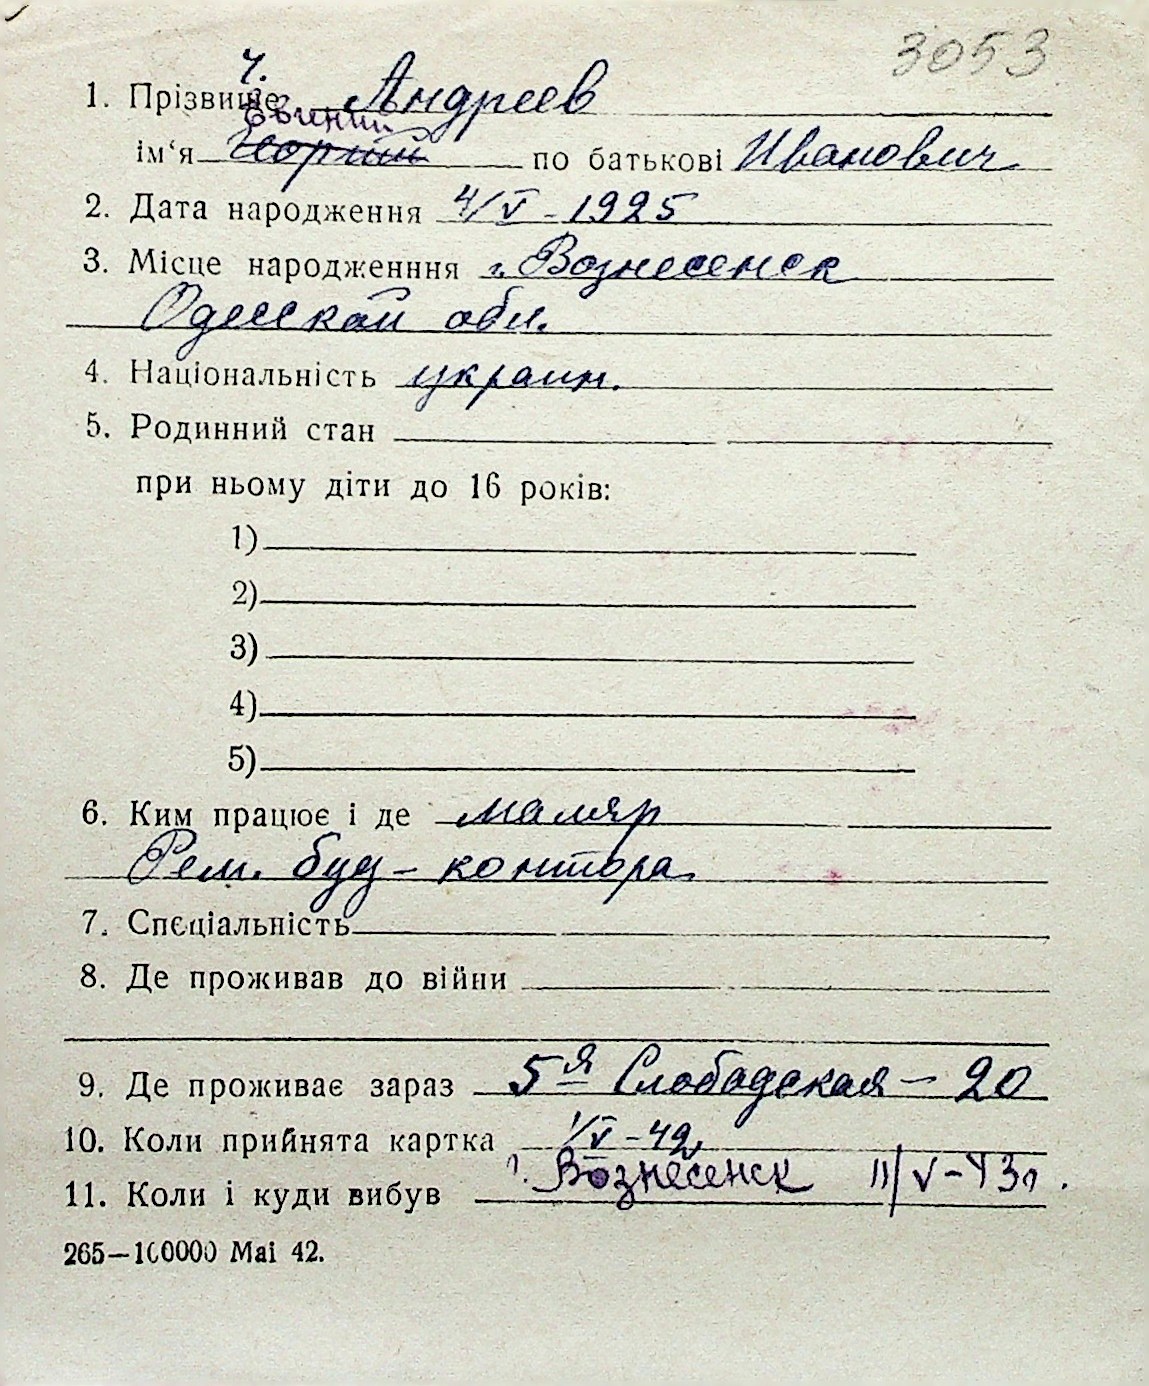 3053
ч.
1. Прізвище Андреев
Евгений
ім‘я Георгий по батькові Иванович
2. Дата народження 4/V - 1925
3. Місце народженння г. Вознесенск
Одесской обл.
4. Національність украин.
5. Родинний стан
при ньому діти до 16 років:
1)
2)
3)
4)
5)
6. Ким працює і де маляр
Рем. буд - контора
7. Спєціальність
8. Де проживав до війни
9. Де проживає зараз 5я Слободская - 20
10. Коли прийнята картка 1/V - 42
11. Коли і куди вибув г. Вознесенск 11/V - 43г.
265—100000 Маі 42.